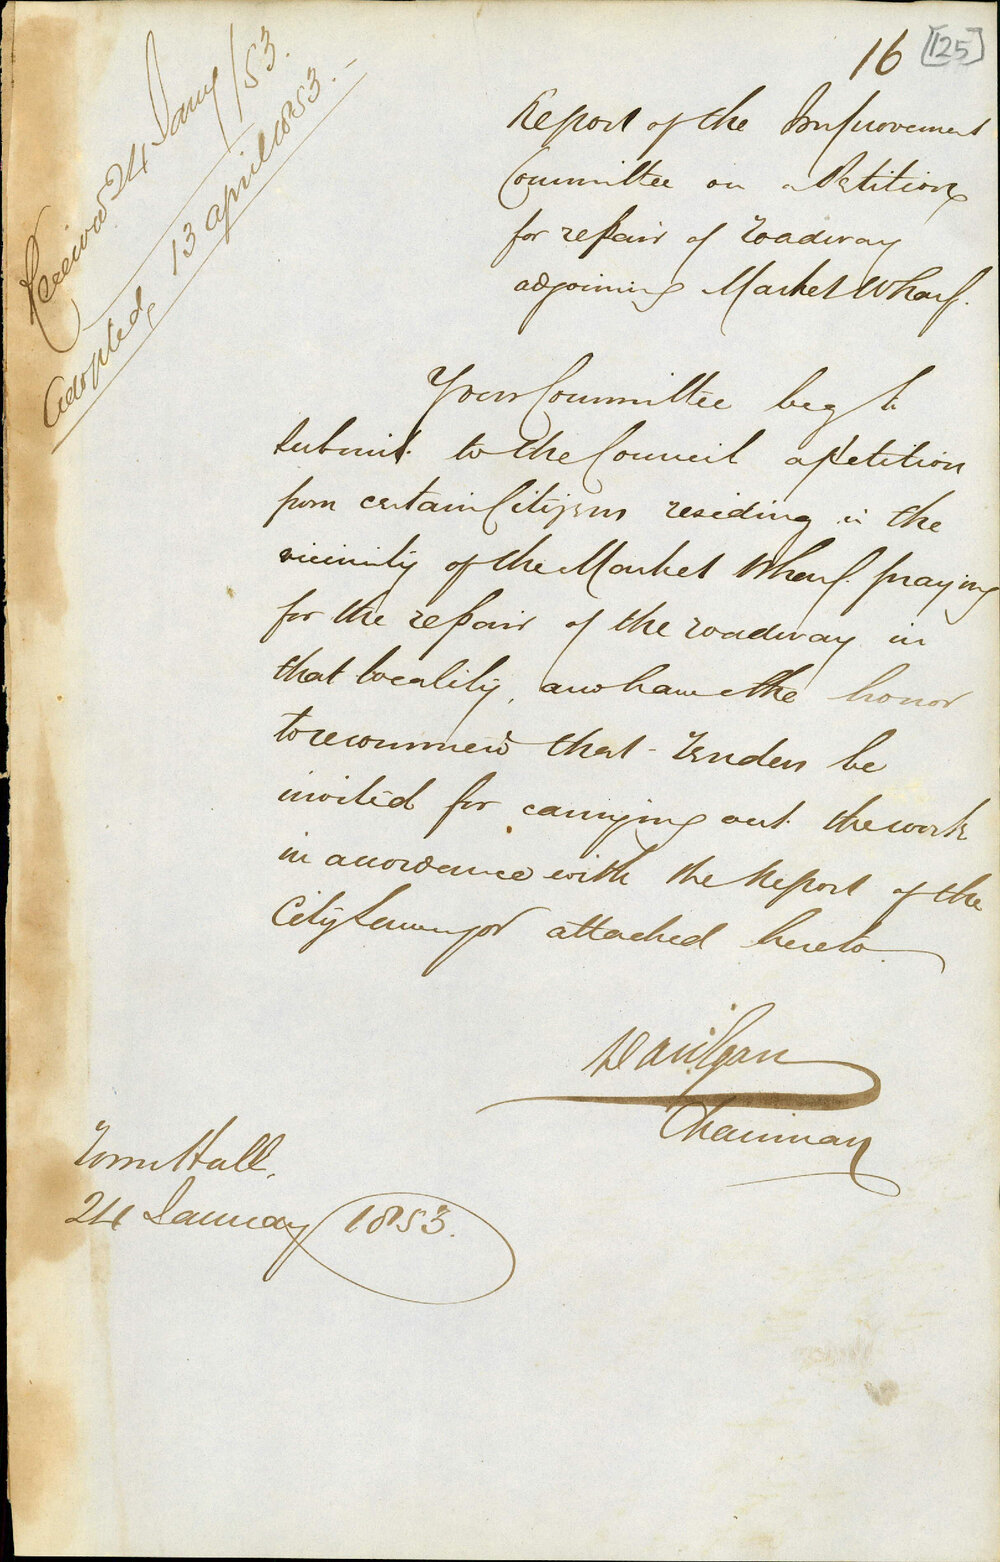 16 [125]
Received 24 Jany/53.
Adopted, 13 April 1853.
Report of the Improvement
Committee on a Petition
for repair of roadway
adjoining Market Wharf.
Your Committee beg to
submit to the Council a Petition
from certain Citizens residing in the
vicinity of the Market Wharf praying
for the repair of the roadway in
that locality, and have the honor
to recommend that Tenders be
invited for carrying out the work
in accordance with the Report of the
City Surveyor attached hereto
Chairman
Town Hall.
24 January 1853.